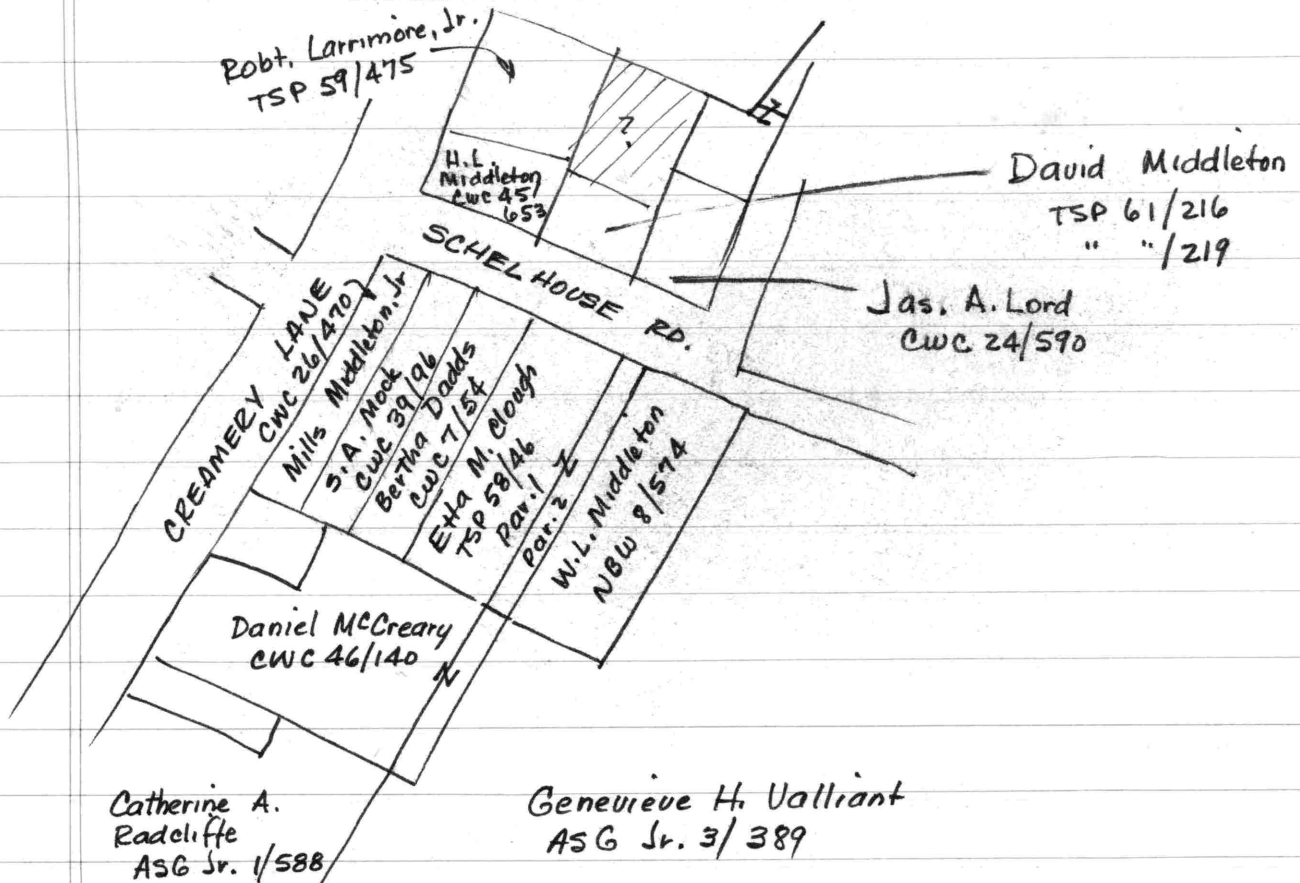 Robt. Larrimore, Jr.
TSP 59/475
?
H.L.
Middleton
CWC 45/
653
David Middleton
TSP 61/216
" "/219
SCHELHOUSE RD.
Jas. A. Lord
CWC 24/590
CREAMERY LANE
CWC 26/470
Mills Middleton, Jr
S.A. Mock
CWC 39/96
Bertha Dadds
CWC 7/54
Etta M. Clough
TSP 58/46
Par. 1
Par. 2
W.L. Middleton
NBW 8/574
Daniel McCreary
CWC 46/140
Catherine A.
Radcliffe
ASG Jr. 1/588
Genevieve H. Valliant
ASG Jr. 3/389